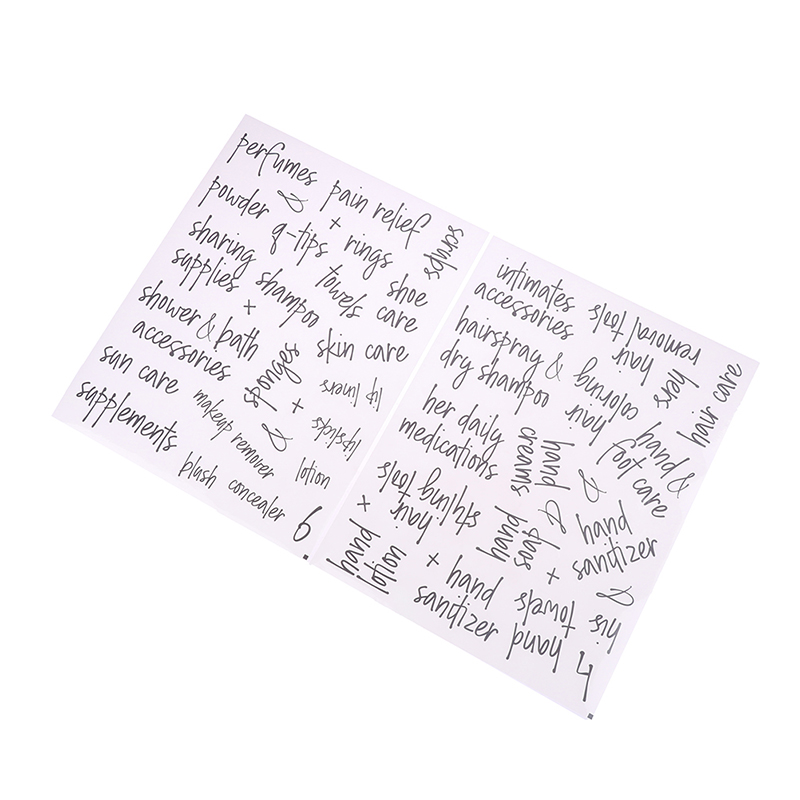 perfumes
pain relief
powder
&
+
scrubs
q-tips
rings
sharing
supplies
shampoo
towels
shoe
care
+
shower & bath
accessories
sponges
skin care
sun care
lip liners
+
lipsticks
supplements
makeup remover
&
lotion
blush
concealer
6
intimates
accessories
hair
removal tools
hairspray &
dry shampoo
hair
coloring
hers
hair care
her daily
medications
hand
creams
hand &
foot care
&
hair
styling tools
+
&
hand
soap
hand
sanitizer
hand
lotion
+
+
hand
sanitizer
hand
towels
&
his
4